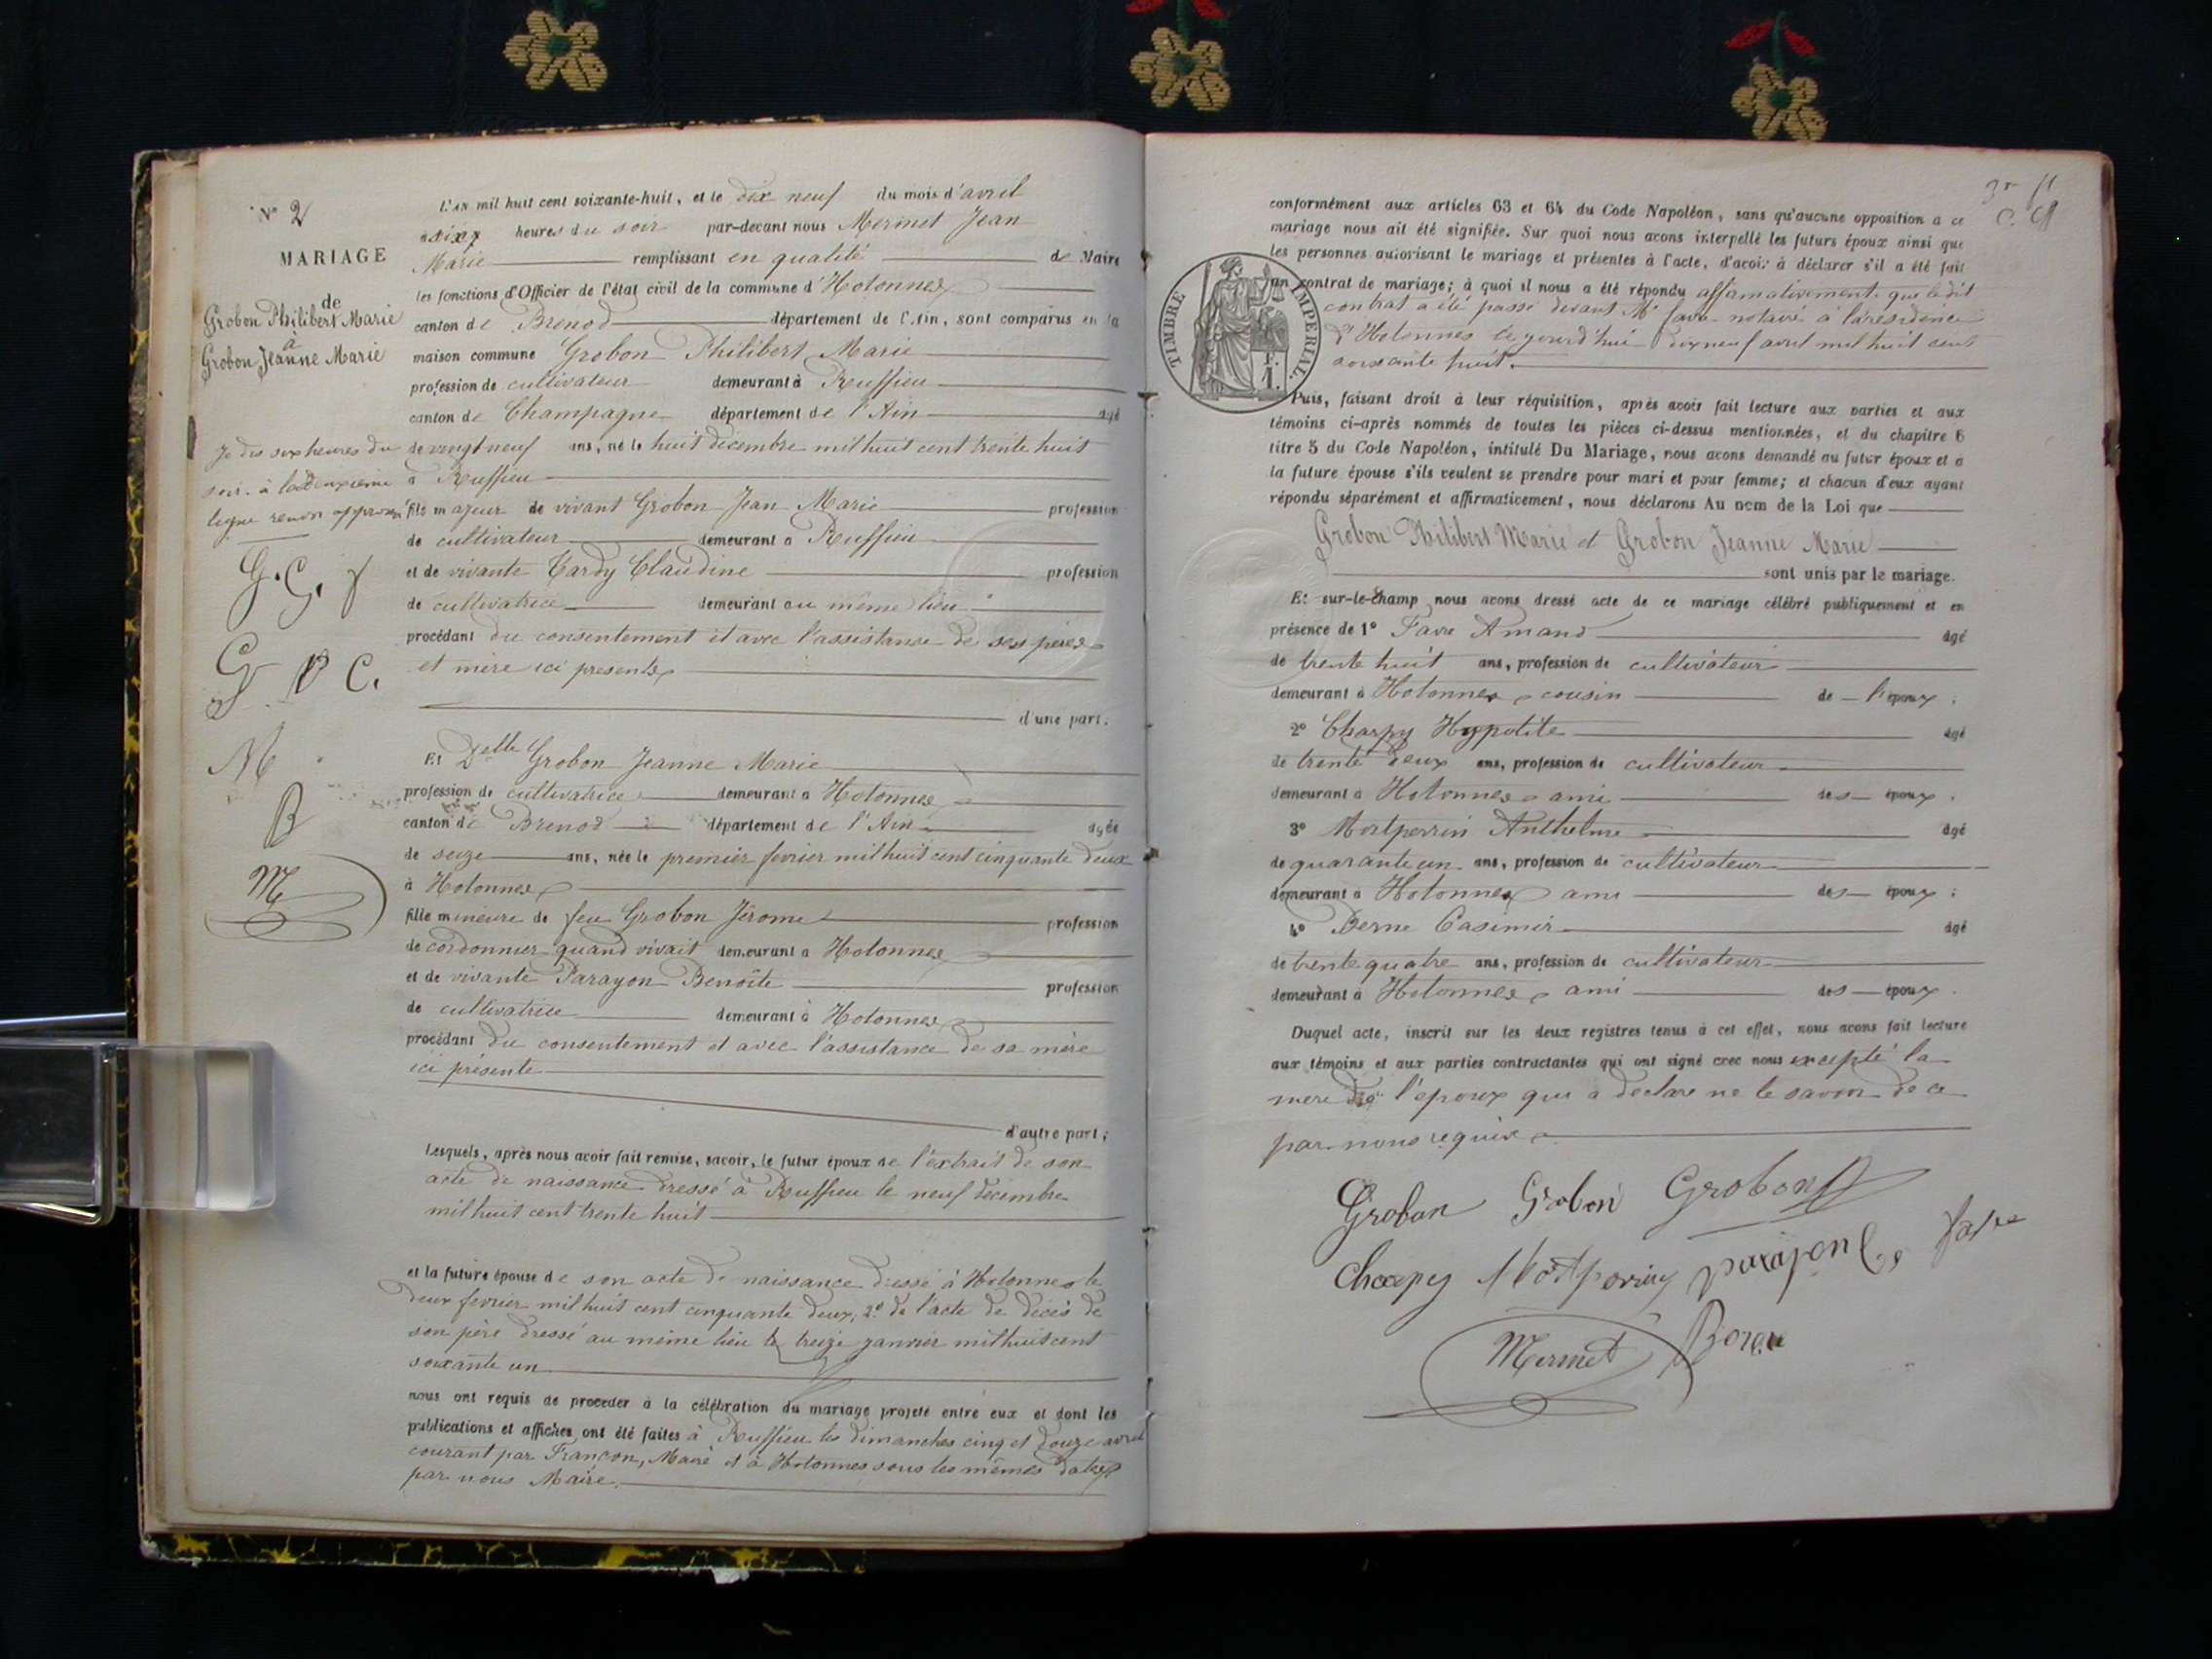 N° 2
MARIAGE
de
Grobon Philibert Marie
à
Grobon Jeanne Marie
Je dis six heures du
soir à la deuxième
ligne renvoi approuvé
G. C.
G P C.
M
B
M
L'AN mil huit cent soixante-huit, et le dix neuf du mois d'avril
à six heures du soir par-devant nous Mermet Jean
Marie remplissant en qualité de Maire
les fonctions d'Officier de l'état civil de la commune d'Hotonnes
canton de Brenod département de l'Ain, sont comparus en la
maison commune Grobon Philibert Marie
profession de cultivateur demeurant à Ruffieu
canton de Champagne département de l'Ain âgé
de vingt neuf ans, né le huit décembre mil huit cent trente huit
à Ruffieu
fils majeur de vivant Grobon Jean Marie profession
de cultivateur demeurant à Ruffieu
et de vivante Tardy Claudine profession
de cultivatrice demeurant au même lieu
procédant du consentement et avec l'assistance de ses père
et mère ici présents
d'une part;
Et Delle Grobon Jeanne Marie
profession de cultivatrice demeurant à Hotonnes
canton de Brenod département de l'Ain âgée
de seize ans, née le premier fevrier mil huit cent cinquante deux
à Hotonnes
fille mineure de feu Grobon Jérome profession
de cordonnier quand vivait demeurant à Hotonnes
et de vivante Parayon Benoîte profession
de cultivatrice demeurant à Hotonnes
procédant du consentement et avec l'assistance de sa mère
ici présente
d'autre part;
Lesquels, après nous avoir fait remise, savoir, le futur époux de l'extrait de son
acte de naissance dressé à Ruffieu le neuf décembre
mil huit cent trente huit
et la future épouse de son acte de naissance dressé à Hotonnes le
deux fevrier mil huit cent cinquante deux, 2° de l'acte de décès de
son père dressé au même lieu le treize janvier mil huit cent
soixante un
nous ont requis de procéder à la célébration du mariage projeté entre eux et dont les
publications et affiches ont été faites à Ruffieu les dimanches cinq et douze avril
courant par Françon, Maire et à Hotonnes sous les mêmes dates
par nous Maire.
conformément aux articles 63 et 64 du Code Napoléon, sans qu'aucune opposition à ce
mariage nous ait été signifiée. Sur quoi nous avons interpellé les futurs époux ainsi que
les personnes autorisant le mariage et présentes à l'acte, d'avoir à déclarer s'il a été fait
un contrat de mariage; à quoi il nous a été répondu affirmativement que le dit
contrat a été passé devant Me Favre notaire à la résidence
d'Hotonnes ce jourd'hui dix neuf avril mil huit cent
soixante huit.
TIMBRE IMPERIAL.
Puis, faisant droit à leur réquisition, après avoir fait lecture aux parties et aux
témoins ci-après nommés de toutes les pièces ci-dessus mentionnées, et du chapitre 6
titre 5 du Code Napoléon, intitulé Du Mariage, nous avons demandé au futur époux et à
la future épouse s'ils veulent se prendre pour mari et pour femme; et chacun d'eux ayant
répondu séparément et affirmativement, nous déclarons Au nom de la Loi que
Grobon Philibert Marie et Grobon Jeanne Marie
sont unis par le mariage.
Et sur-le-champ nous avons dressé acte de ce mariage célébré publiquement et en
présence de 1° Favre Amand âgé
de trente huit ans, profession de cultivateur
demeurant à Hotonnes cousin de l'époux;
2° Charpy Hypolite âgé
de trente deux ans, profession de cultivateur
demeurant à Hotonnes ami des époux;
3° Montperrin Anthelme âgé
de quarante un ans, profession de cultivateur
demeurant à Hotonnes ami des époux;
4° Berne Casimir âgé
de trente quatre ans, profession de cultivateur
demeurant à Hotonnes ami des époux.
Duquel acte, inscrit sur les deux registres tenus à cet effet, nous avons fait lecture
aux témoins et aux parties contractantes qui ont signé avec nous excepté la
mere de l'époux qui a déclaré ne le savoir de ce
par nous requise
Grobon Grobon Grobon
Charpy Montperrin parajon favre
Mermet